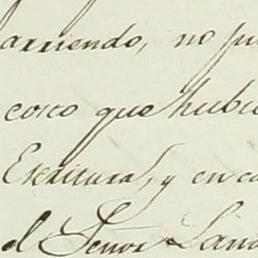 arriendo, no pu
cosco que hubi
Escritura, y en ca
el Señor Lan